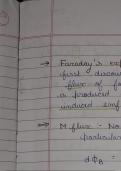 → Faraday's exp
first discov
flux of
is produced
induced emf
→ M flux :- No
particular
dΦB =